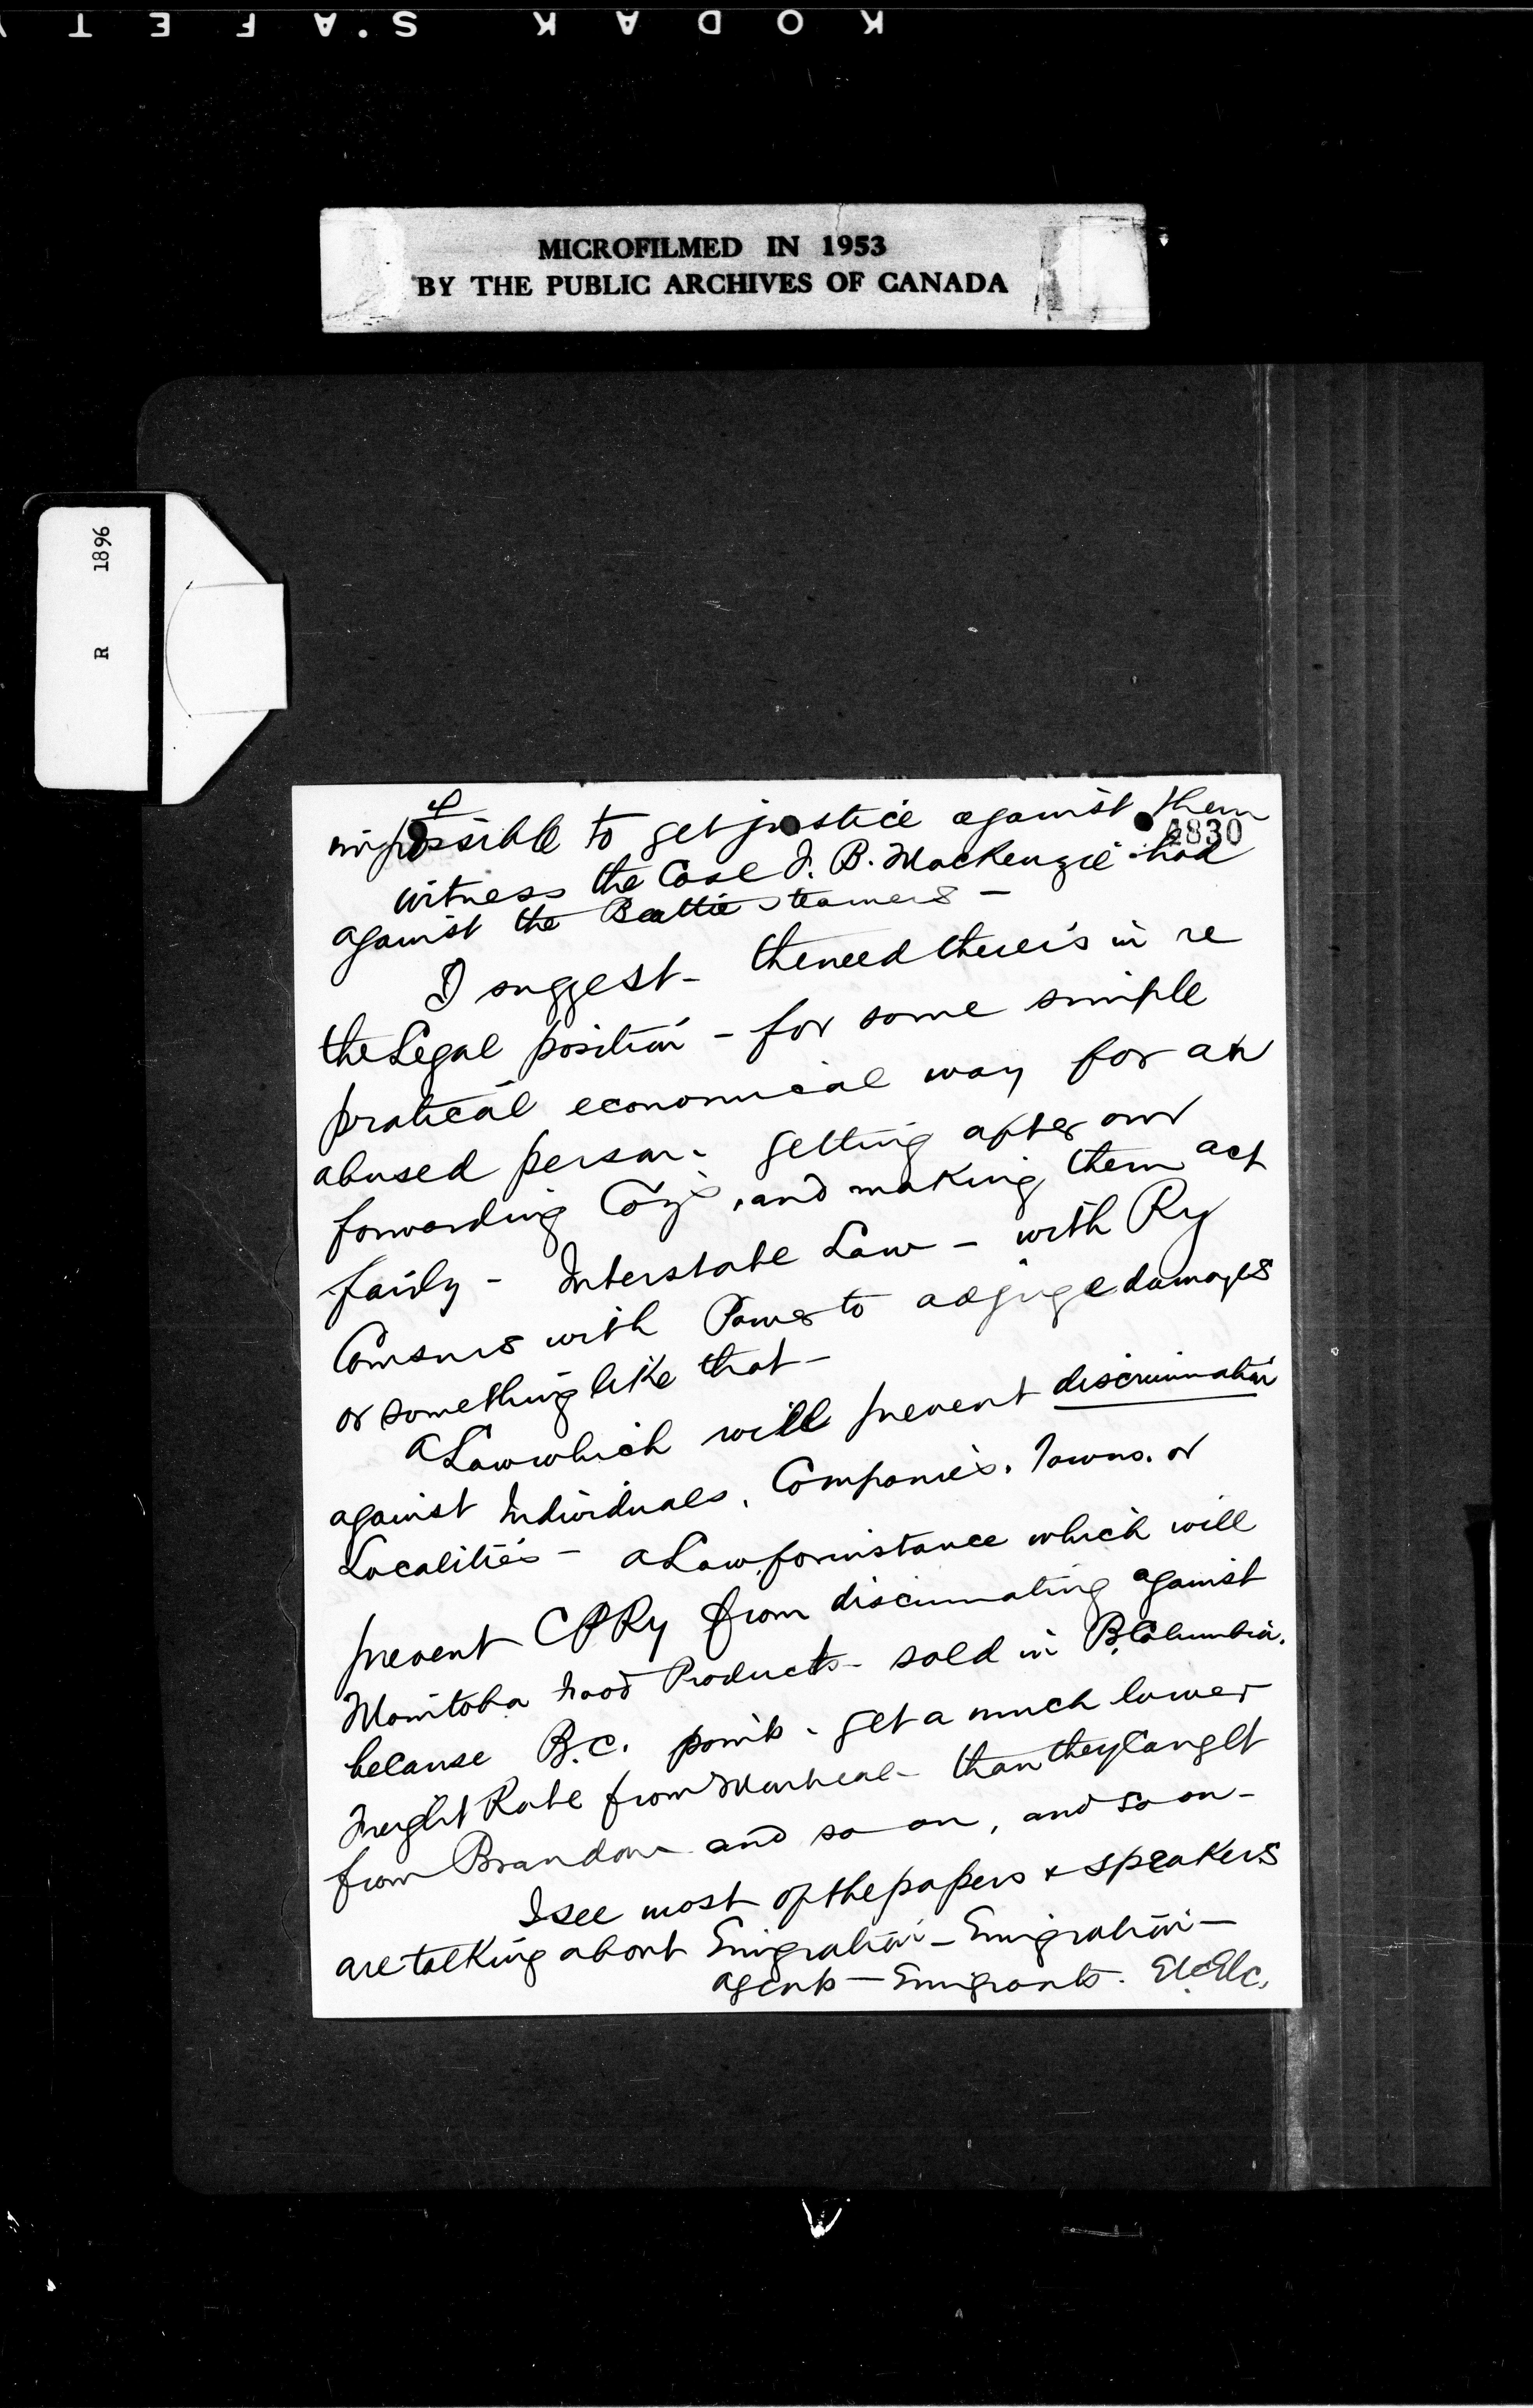 KODAK SAFETY
MICROFILMED IN 1953
BY THE PUBLIC ARCHIVES OF CANADA
R 1896
4
impossible to get justice against them
4830
witness the Case J. B. MacKenzie had
against the Beattie steamers -
I suggest - the need there is in re
the Legal position - for some simple
pratical economical way for an
abused person - getting after our
forwarding Coy's, and making them act
fairly - Interstate Law - with Ry
Comsnrs with Power to adjuge damages
or something like that -
a Law which will prevent discrimination
against Individuals, Companies, Towns, or
Localities - a Law, for instance which will
prevent CPRy from disciminating against
Manitoba food Products - sold in B. Columbia.
because B.C. points - get a much lower
Freight Rate from Montreal - than they can get
from Brandon and so on, and so on -
I see most of the papers & speakers
are talking about Emigration - Emigration -
agents - Emigrants. Etc Etc.